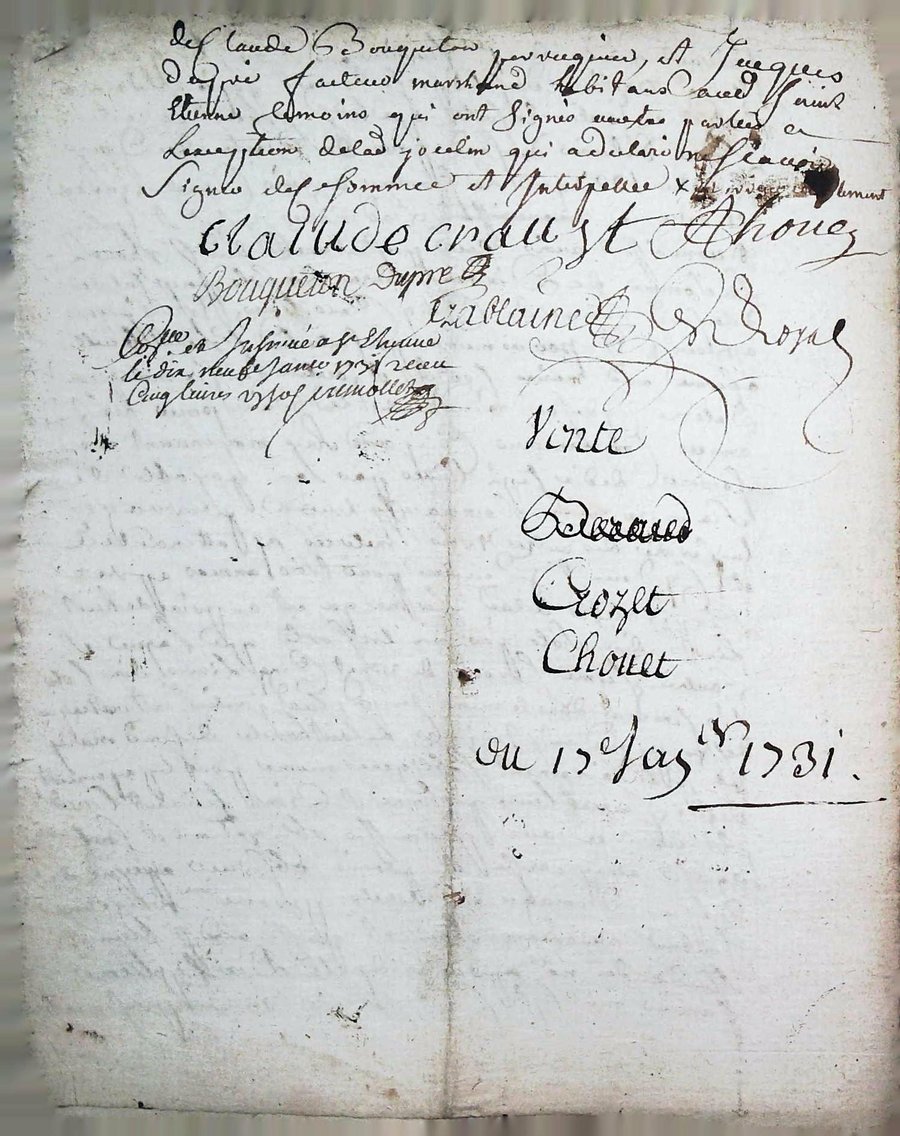 de Claude Bouqueton perruquier, et Jacques
dupré facteur marchand habitans aud Saint
Etienne temoins qui ont signé avec les parties a
Lexception de lad jocelin qui a declaré ne scavoir
Signer de ce sommée et Interpellée
Claude crau st Chouez
Bouqueton Dupre
tzablaine Royal
Con.lle et Insinué a St Etienne
le dix neuf Janv 1731 receu
Cinq livres
Vente
Crozet
Chouet
du 17e Janvier 1731.